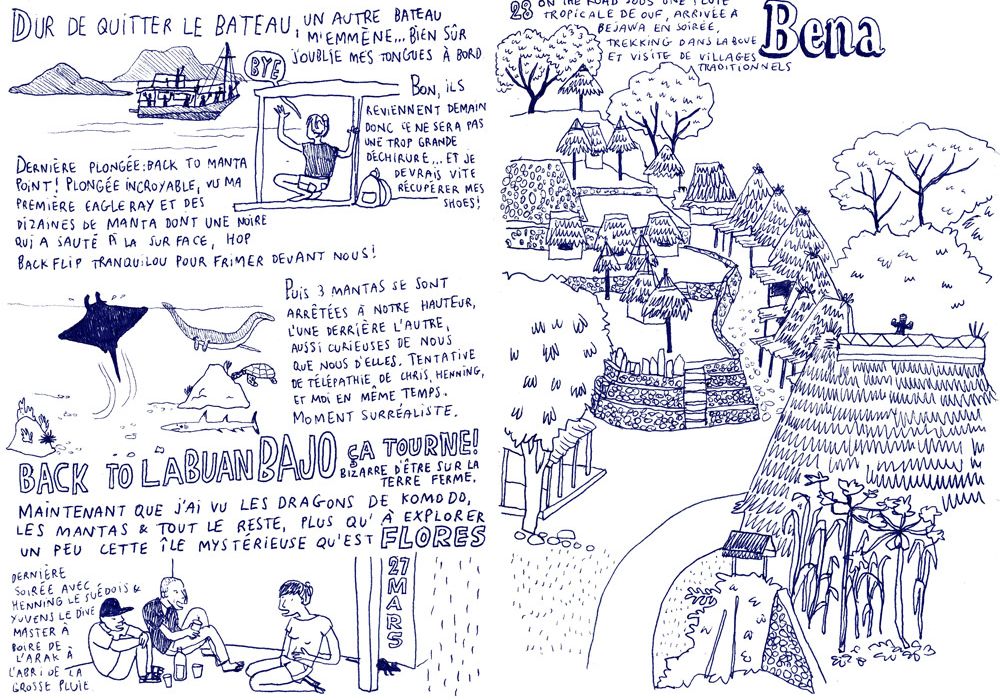 DUR DE QUITTER LE BATEAU, UN AUTRE BATEAU
M'EMMÈNE... BIEN SÛR
J'OUBLIE MES TONGUES À BORD
BYE
BON, ILS
REVIENNENT DEMAIN
DONC CE NE SERA PAS
UNE TROP GRANDE
DÉCHIRURE... ET JE
DEVRAIS VITE
RÉCUPÉRER MES
SHOES!
DERNIÈRE PLONGÉE: BACK TO MANTA
POINT! PLONGÉE INCROYABLE, VU MA
PREMIÈRE EAGLE RAY ET DES
DIZAINES DE MANTA DONT UNE NOIRE
QUI A SAUTÉ À LA SURFACE, HOP
BACKFLIP TRANQUILOU POUR FRIMER DEVANT NOUS!
PUIS 3 MANTAS SE SONT
ARRÊTÉES À NOTRE HAUTEUR,
L'UNE DERRIÈRE L'AUTRE,
AUSSI CURIEUSES DE NOUS
QUE NOUS D'ELLES. TENTATIVE
DE TÉLÉPATHIE DE CHRIS, HENNING,
ET MOI EN MÊME TEMPS.
MOMENT SURRÉALISTE.
BACK TO LABUAN BAJO ÇA TOURNE!
BIZARRE D'ÊTRE SUR LA
TERRE FERME.
MAINTENANT QUE J'AI VU LES DRAGONS DE KOMODO,
LES MANTAS & TOUT LE RESTE, PLUS QU'À EXPLORER
UN PEU CETTE ÎLE MYSTÉRIEUSE QU'EST FLORES
DERNIÈRE
SOIRÉE AVEC
HENNING LE SUÉDOIS &
YUVENS LE DIVE
MASTER À
BOIRE DE
L'ARAK À
L'ABRI DE LA
GROSSE PLUIE.
27
MARS
28 ON THE ROAD SOUS UNE PLUIE
TROPICALE DE OUF, ARRIVÉE À
BEJAWA EN SOIRÉE,
TREKKING DANS LA BOUE
ET VISITE DE VILLAGES
TRADITIONNELS
Bena